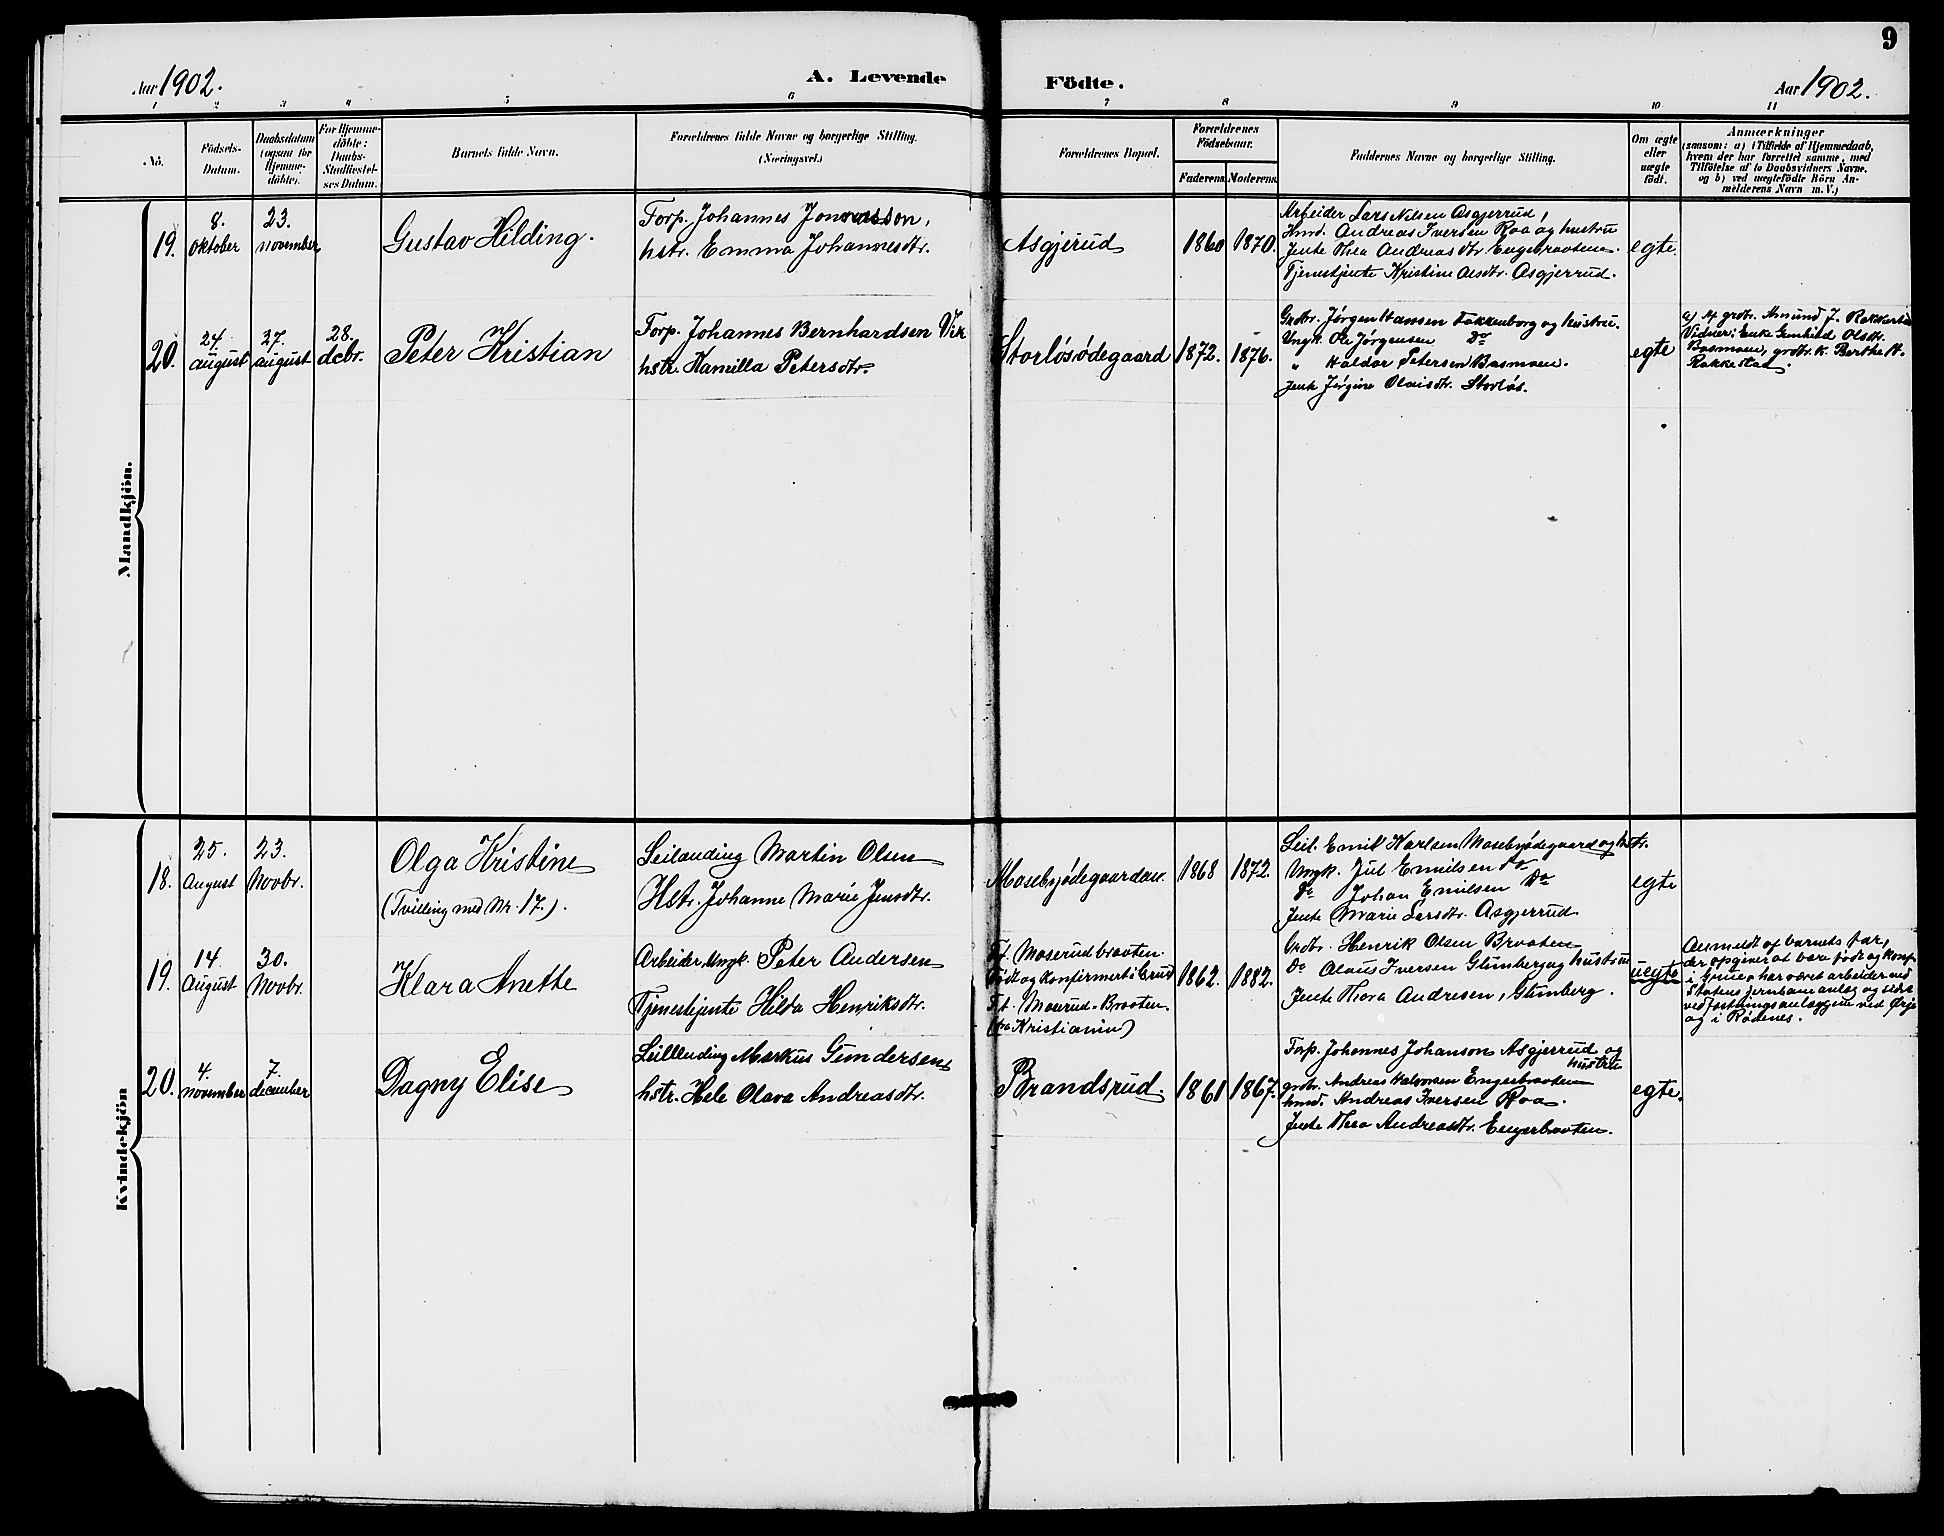 9
Aar 1902.
A. Levende
Födte.
Aar 1902.
1 2 3 4 5 6 7 8 9 10 11
No.
Födsels-
Datum.
Daabsdatum
(ogsaa for
Hjemme-
döbte).
For Hjemme-
döbte:
Daabs-
Stadfæstel-
ses Datum.
Barnets fulde Navn.
Forældrenes fulde Navne og borgerlige Stilling.
(Næringsvei.)
Forældrenes Bopæl.
Forældrenes
Födselsaar.
Faderens.
Moderens.
Faddernes Navne og borgerlige Stilling.
Om ægte
eller
uægte
født.
Anmærkninger
(saasom: a) i Tilfælde af Hjemmedaab,
hvem der har forrettet samme, med
Tilföielse af to Daabsvidners Navne,
og b) ved uægtefödte Börn An-
melderens Navn m. V.)
Mandkjön.
19.
8.
oktober
23.
november
Gustav Hilding.
Torp. Johannes Jonasson,
hstr. Emma Johannesdtr.
Asgjerud
1860
1870.
Arbeider Lars Nilsen Asgjerrud,
Hmd. Andreas Iversen Roa og hustru
Jente Thea Andreasdtr. Engebraatene.
Tjenestjente Kristine Olsdtr. Asgjerrud.
egte.
20.
24.
august
27.
august
28.
debr.
Peter Kristian
Torp. Johannes Bernhardsen Vik
hstr. Kamilla Petersdtr.
Storløsødegaard
1872.
1876.
Grdbr. Jørgen Hansen Takkenborg og hustru.
Ungk. Ole Jørgensen Do
" Haldor Petersen Basmoen.
Jente Jørgine Olaisdtr. Storløs.
egte
a) af grdbr. Amund J. Rakkestad
Vidner: Enke Gunhild Olsdtr.
Basmoen, grdbr. k. Berthe H.
Rakkestad.
Kvindekjön
18.
25.
August
23.
Novbr.
Olga Kristine
(Tvilling med Nr. 17.).
Leilænding Martin Olsen
Hstr. Johanne Marie Jensdtr.
Mosebyødegaarden.
1868
1872.
Leil. Emil Karlsen Mosebyødegaard og hstr.
Ungk. Jul Emilsen do
Do Johan Emilsen Do
Jente Marie Larsdtr. Asgjerrud
egte
19.
14
August
30.
Novbr.
Klara Anette
Arbeider, Ungk. Peter Andersen
Tjenestejente Hilda Henriksdtr.
Ft. Moserud braaten.
Født og konfirmert i Grue
Ft. Moserud-Braaten.
(fra Kristiania)
1862.
1882.
Grdbr. Henrik Olsen Braaten
Do Olaus Iversen Glimberg og hustru
Jente Thora Andresen, Glimberg.
uegte
Anmeldt af barnets far,
der opgiver at være født og konf.
i Grue, har været arbeider ved
Statens jernbane anlæg og sidst
ved fæstningsanlæggene ved Ørje
og i Rødenes.
20.
4.
november
7.
december
Dagny Elise
Leillending Markus Gundersen
hstr. Hele Olava Andreasdtr.
Brandsrud.
1861
1867.
Torp. Johannes Johanson Asgjerrud og
hustru
grdbr. Andreas Halvorsen Engerbraaten
hmd. Andreas Iversen Roa.
Jente Thea Andreasdtr. Engerbraaten.
egte.